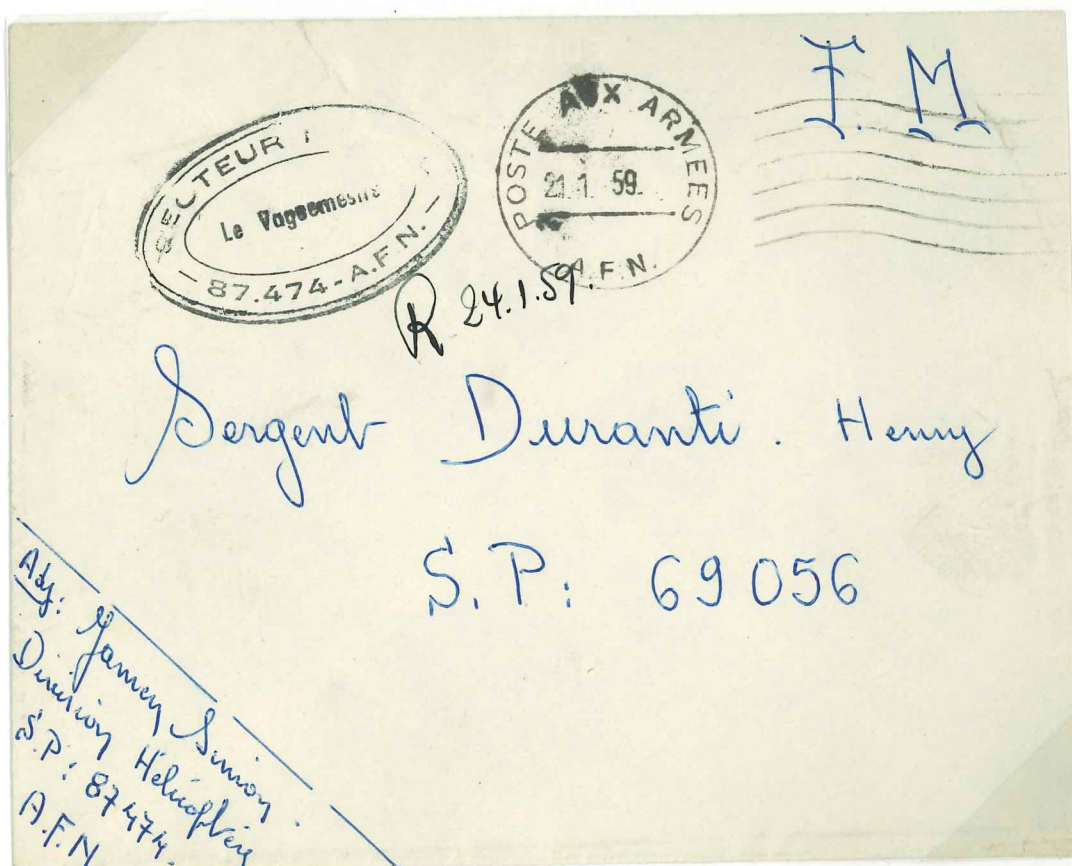 F. M
SECTEUR
Le Vaguemestre
- 87.474 - A.F.N. -
POSTE AUX ARMEES
21.1 59.
A.F.N.
R 24.1.59.
Sergent Duranti. Henry
S.P: 69056
Adj: Simon.
Division Hélicoptère
S.P: 87474.
A.F.N